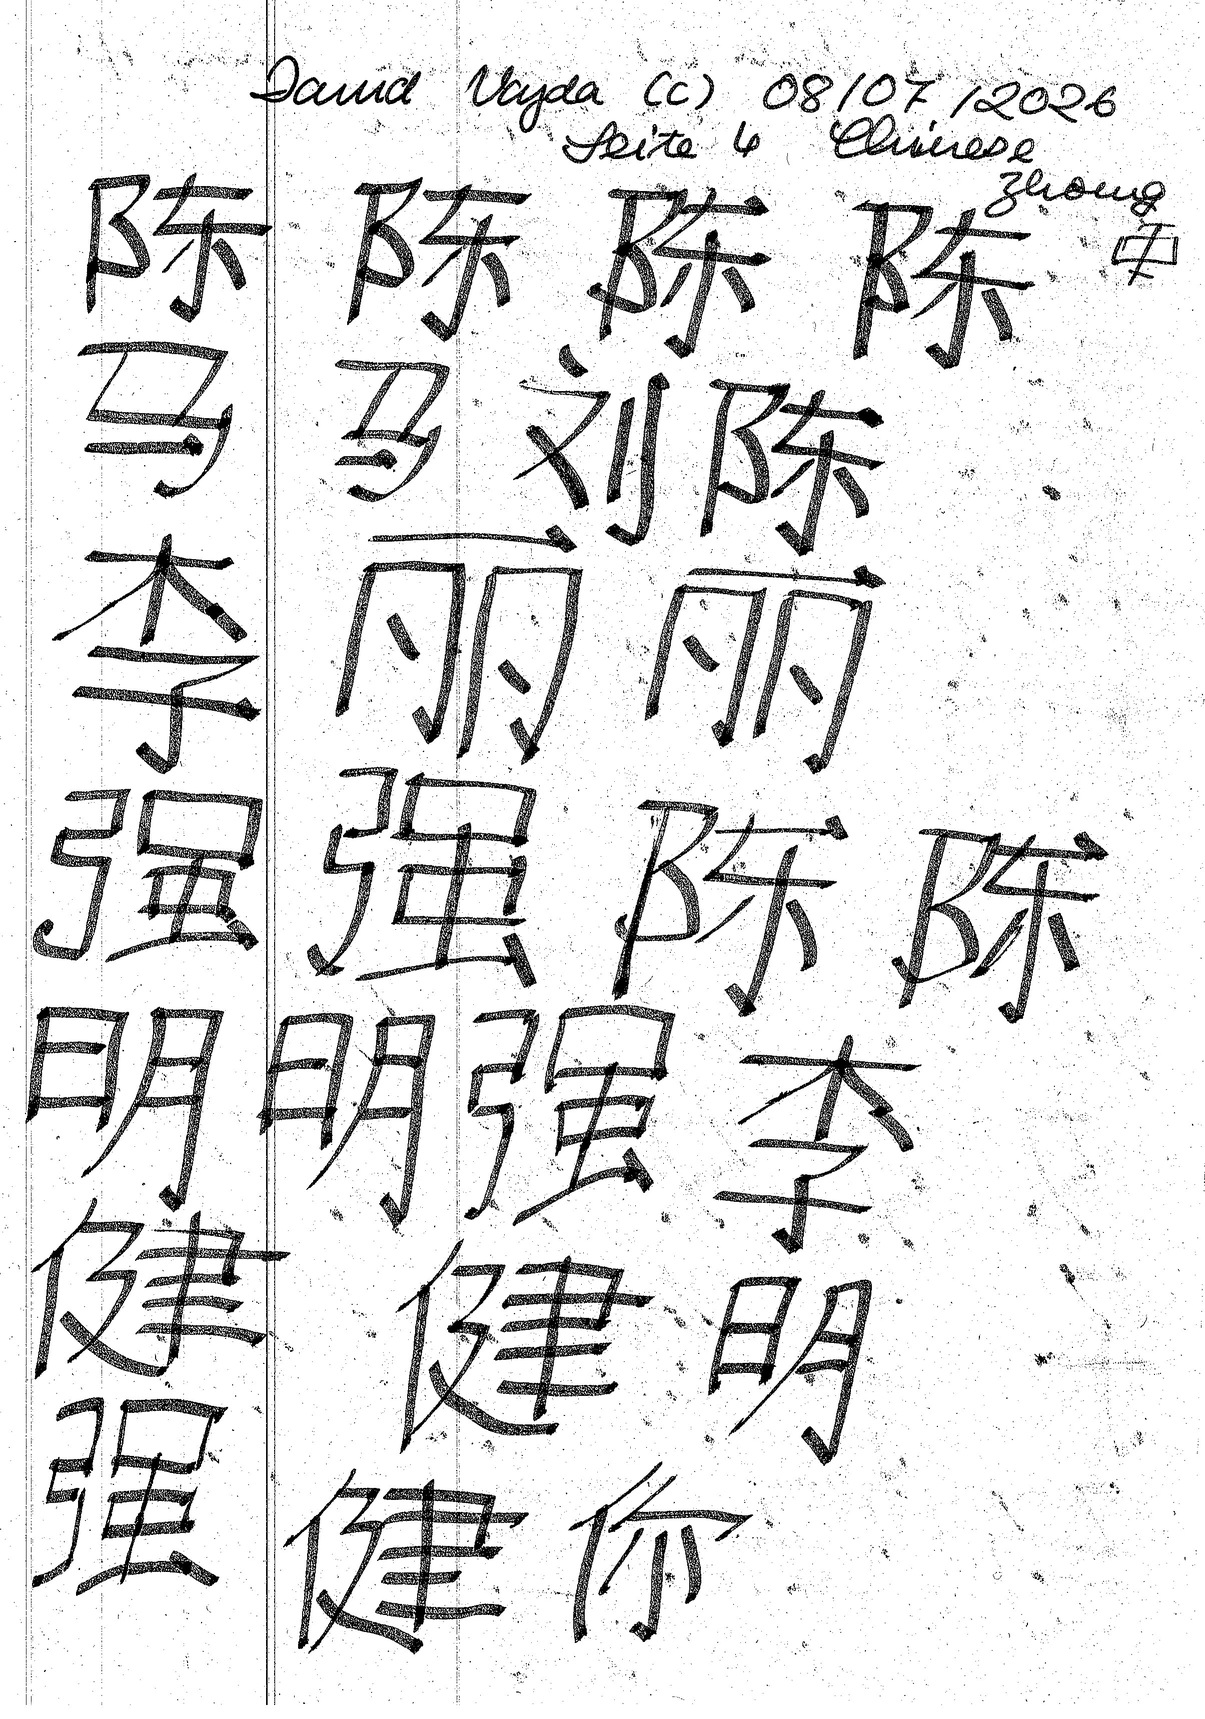 David Vajda (C) 08/07/2026
Seite 4 Chinese
Zhong
中
陈 陈 陈 陈
马 马 刘 陈
李 丽 丽
强 强 陈 陈
明 明 强 李
健 健 明
强 健 你